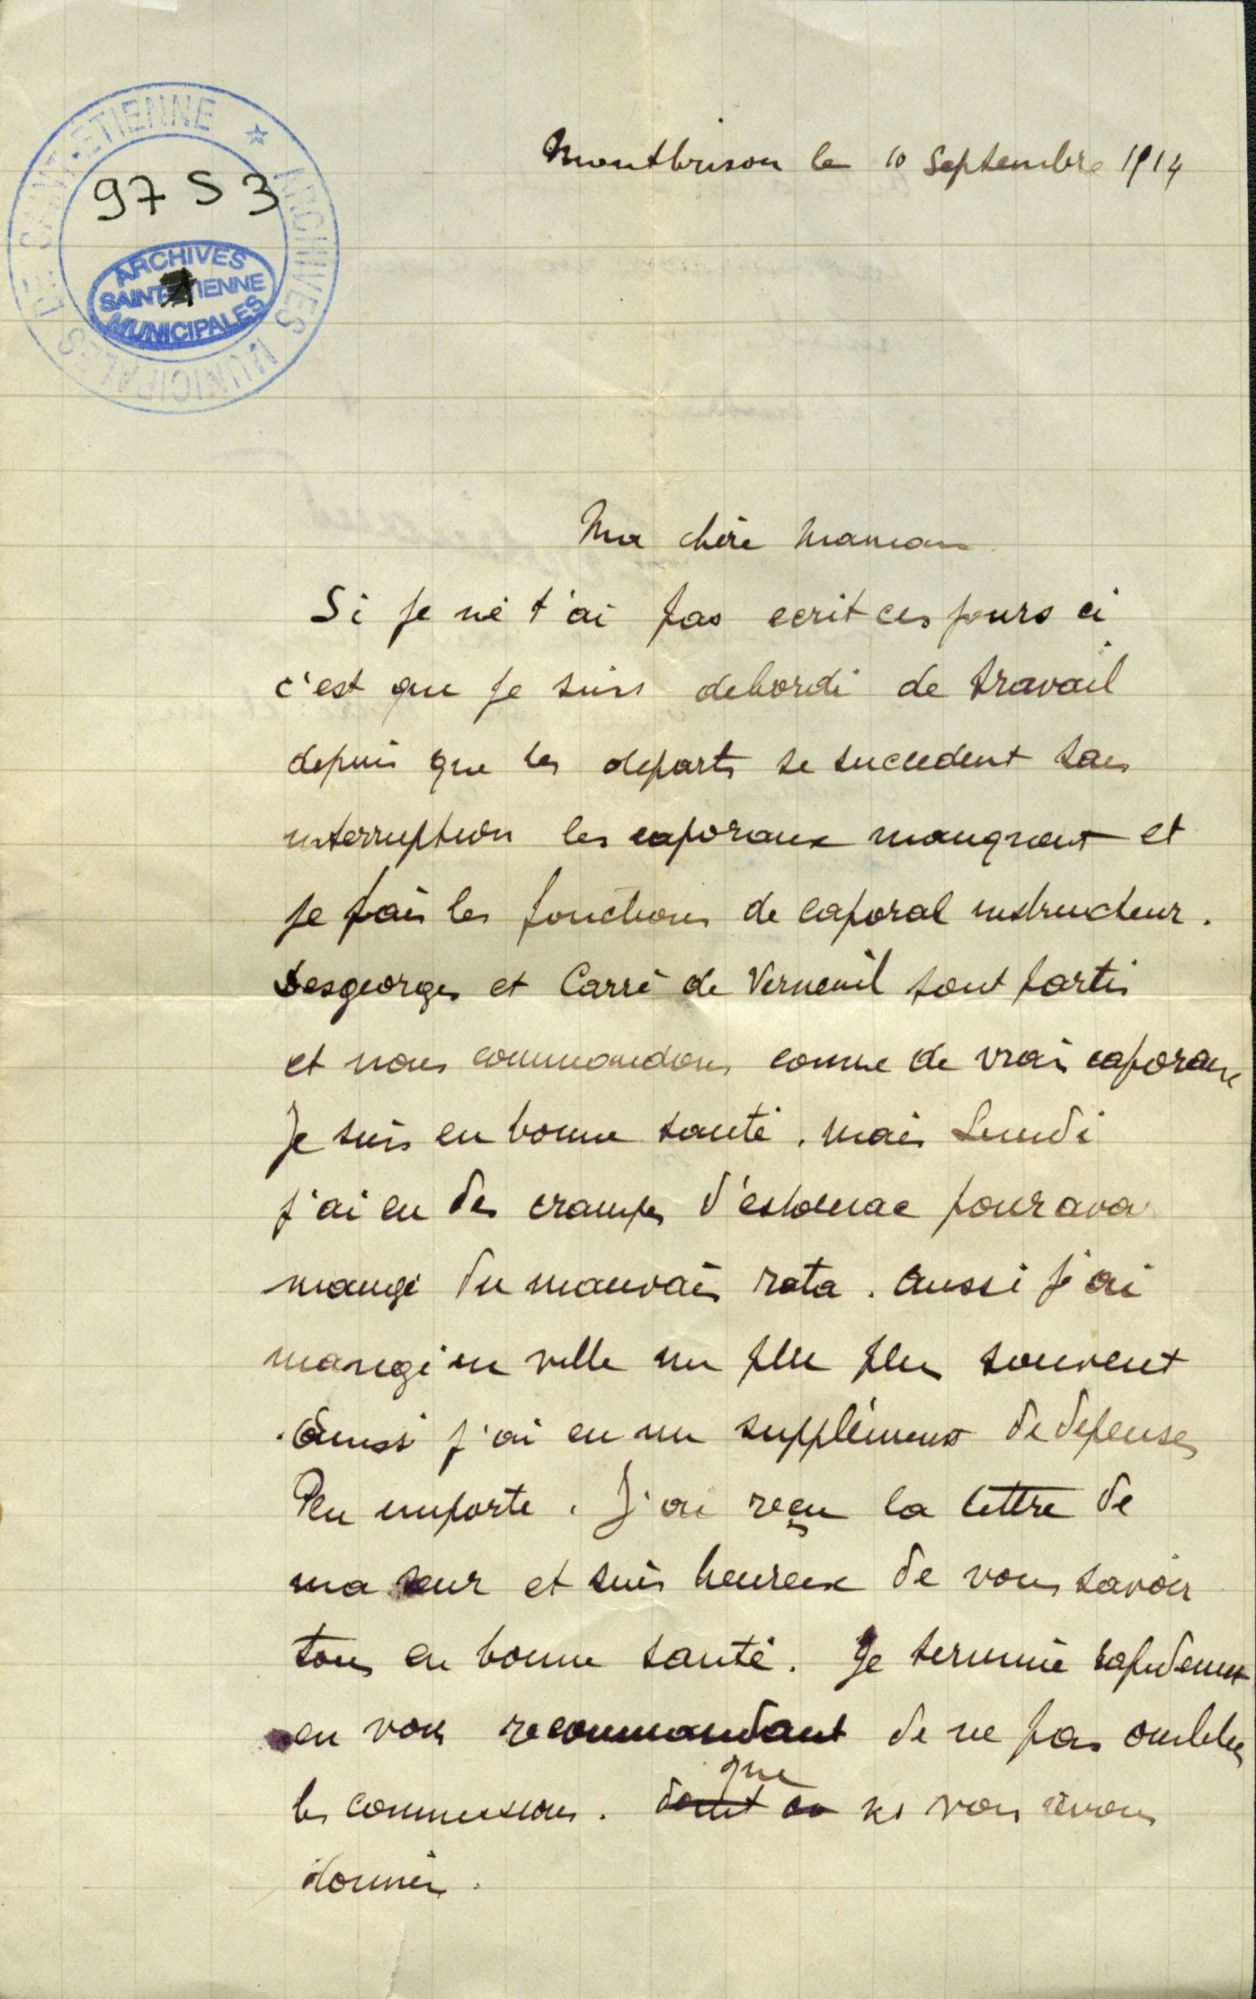 ARCHIVES MUNICIPALES DE SAINT-ETIENNE *
97 S 3
ARCHIVES
SAINT-ETIENNE
MUNICIPALES
Montbrison le 10 Septembre 1914
Ma chère Maman
Si je ne t'ai pas ecrit ces jours ci
c'est que je suis debordé de travail
depuis que les departs se succedent sans
interruption les caporaux manquent et
je fais les fonctions de caporal instructeur.
Desgeorges et Carré de Verneuil sont partis
et nous commandons comme de vrais caporaux
Je suis en bonne santé. mais Lundi
j'ai eu des crampes d'estomac pour avoir
mangé du mauvais rata. aussi j'ai
mangé en ville un peu plus souvent
aussi j'ai eu un supplément de depenses
Peu importe. J'ai reçu la lettre de
ma seur et suis heureux de vous savoir
tous en bonne santé. Je termine rapidement
en vous recommandant de ne pas oublier
les commissions. dont que vous avons
donnés.